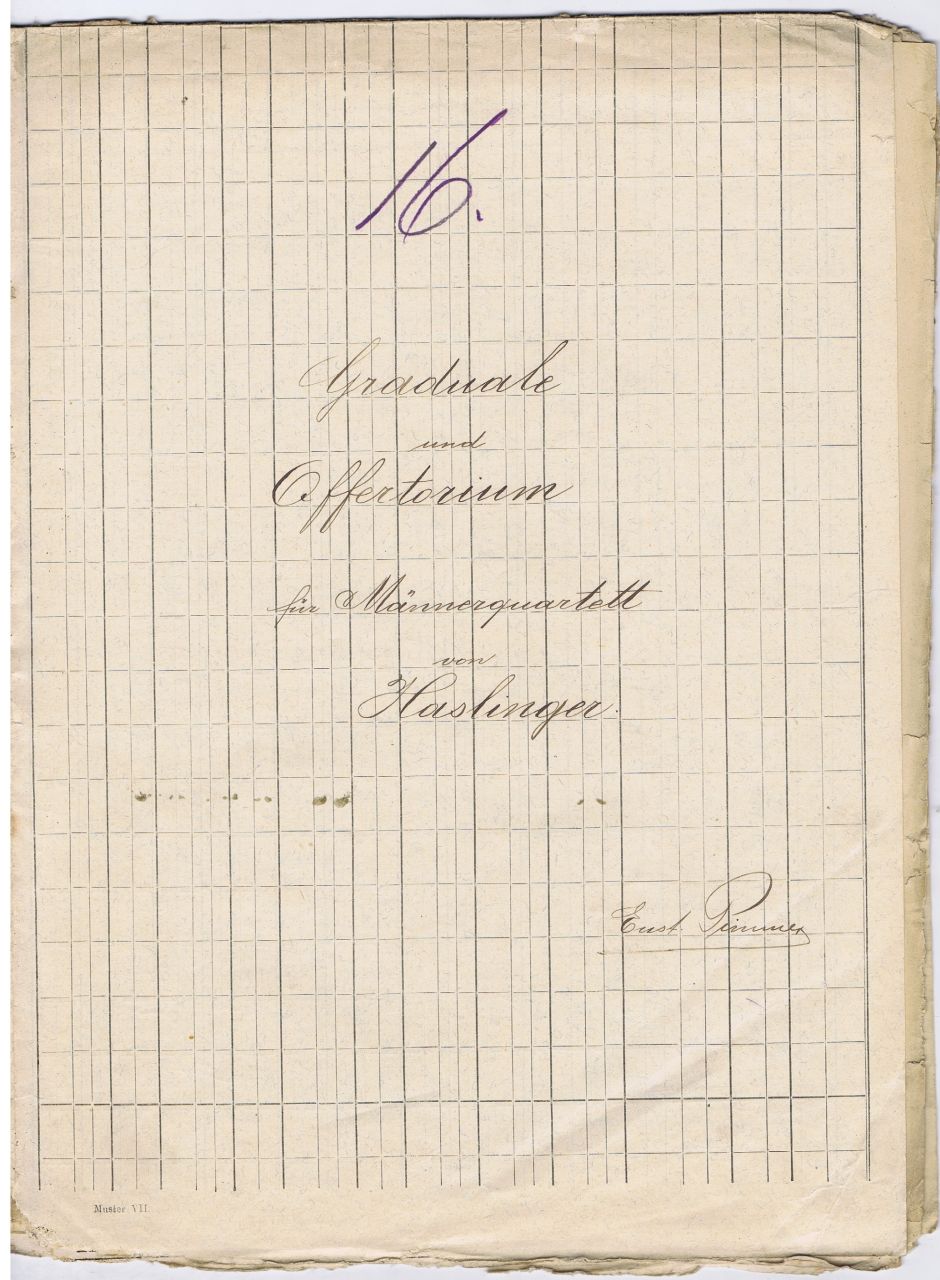 16.
Graduale
und
Offertorium
für Männerquartett
von
Haslinger.
Eust. Pimmer
Muster VII.